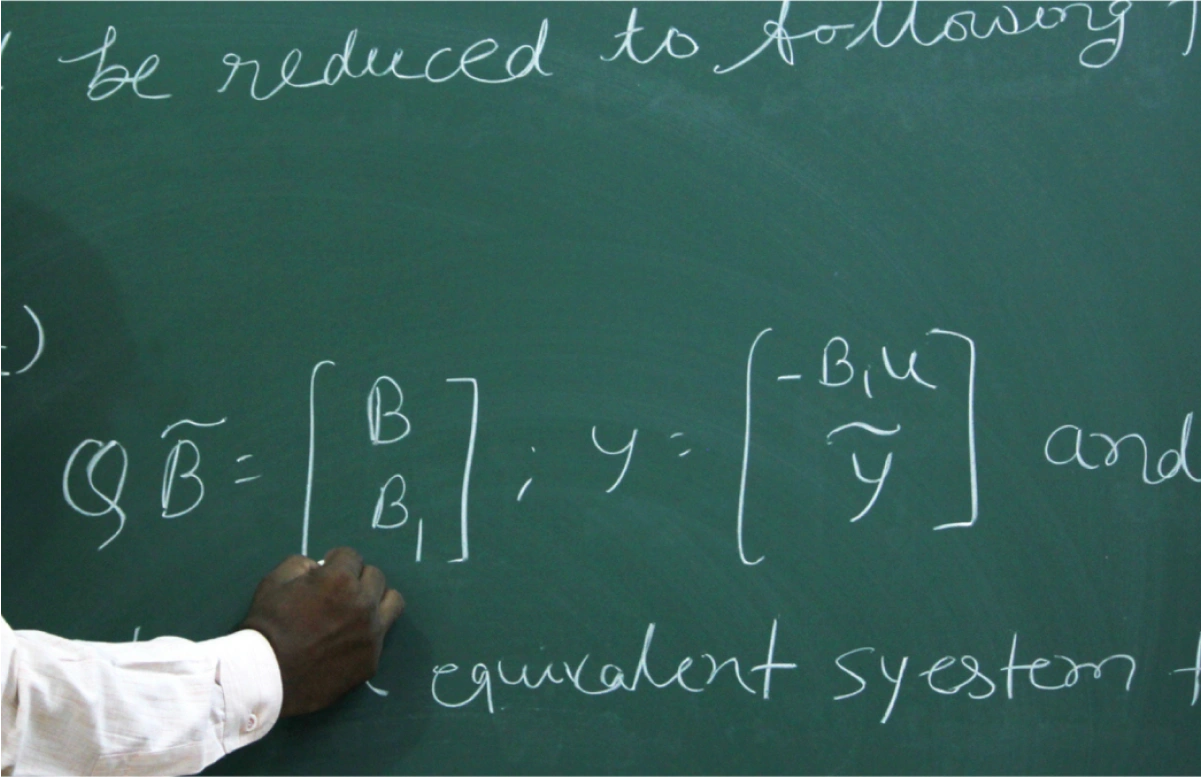 be reduced to following
)
Q B̃ = [ B B₁ ] ; y = [ -B₁u ỹ ] and
equivalent syestem